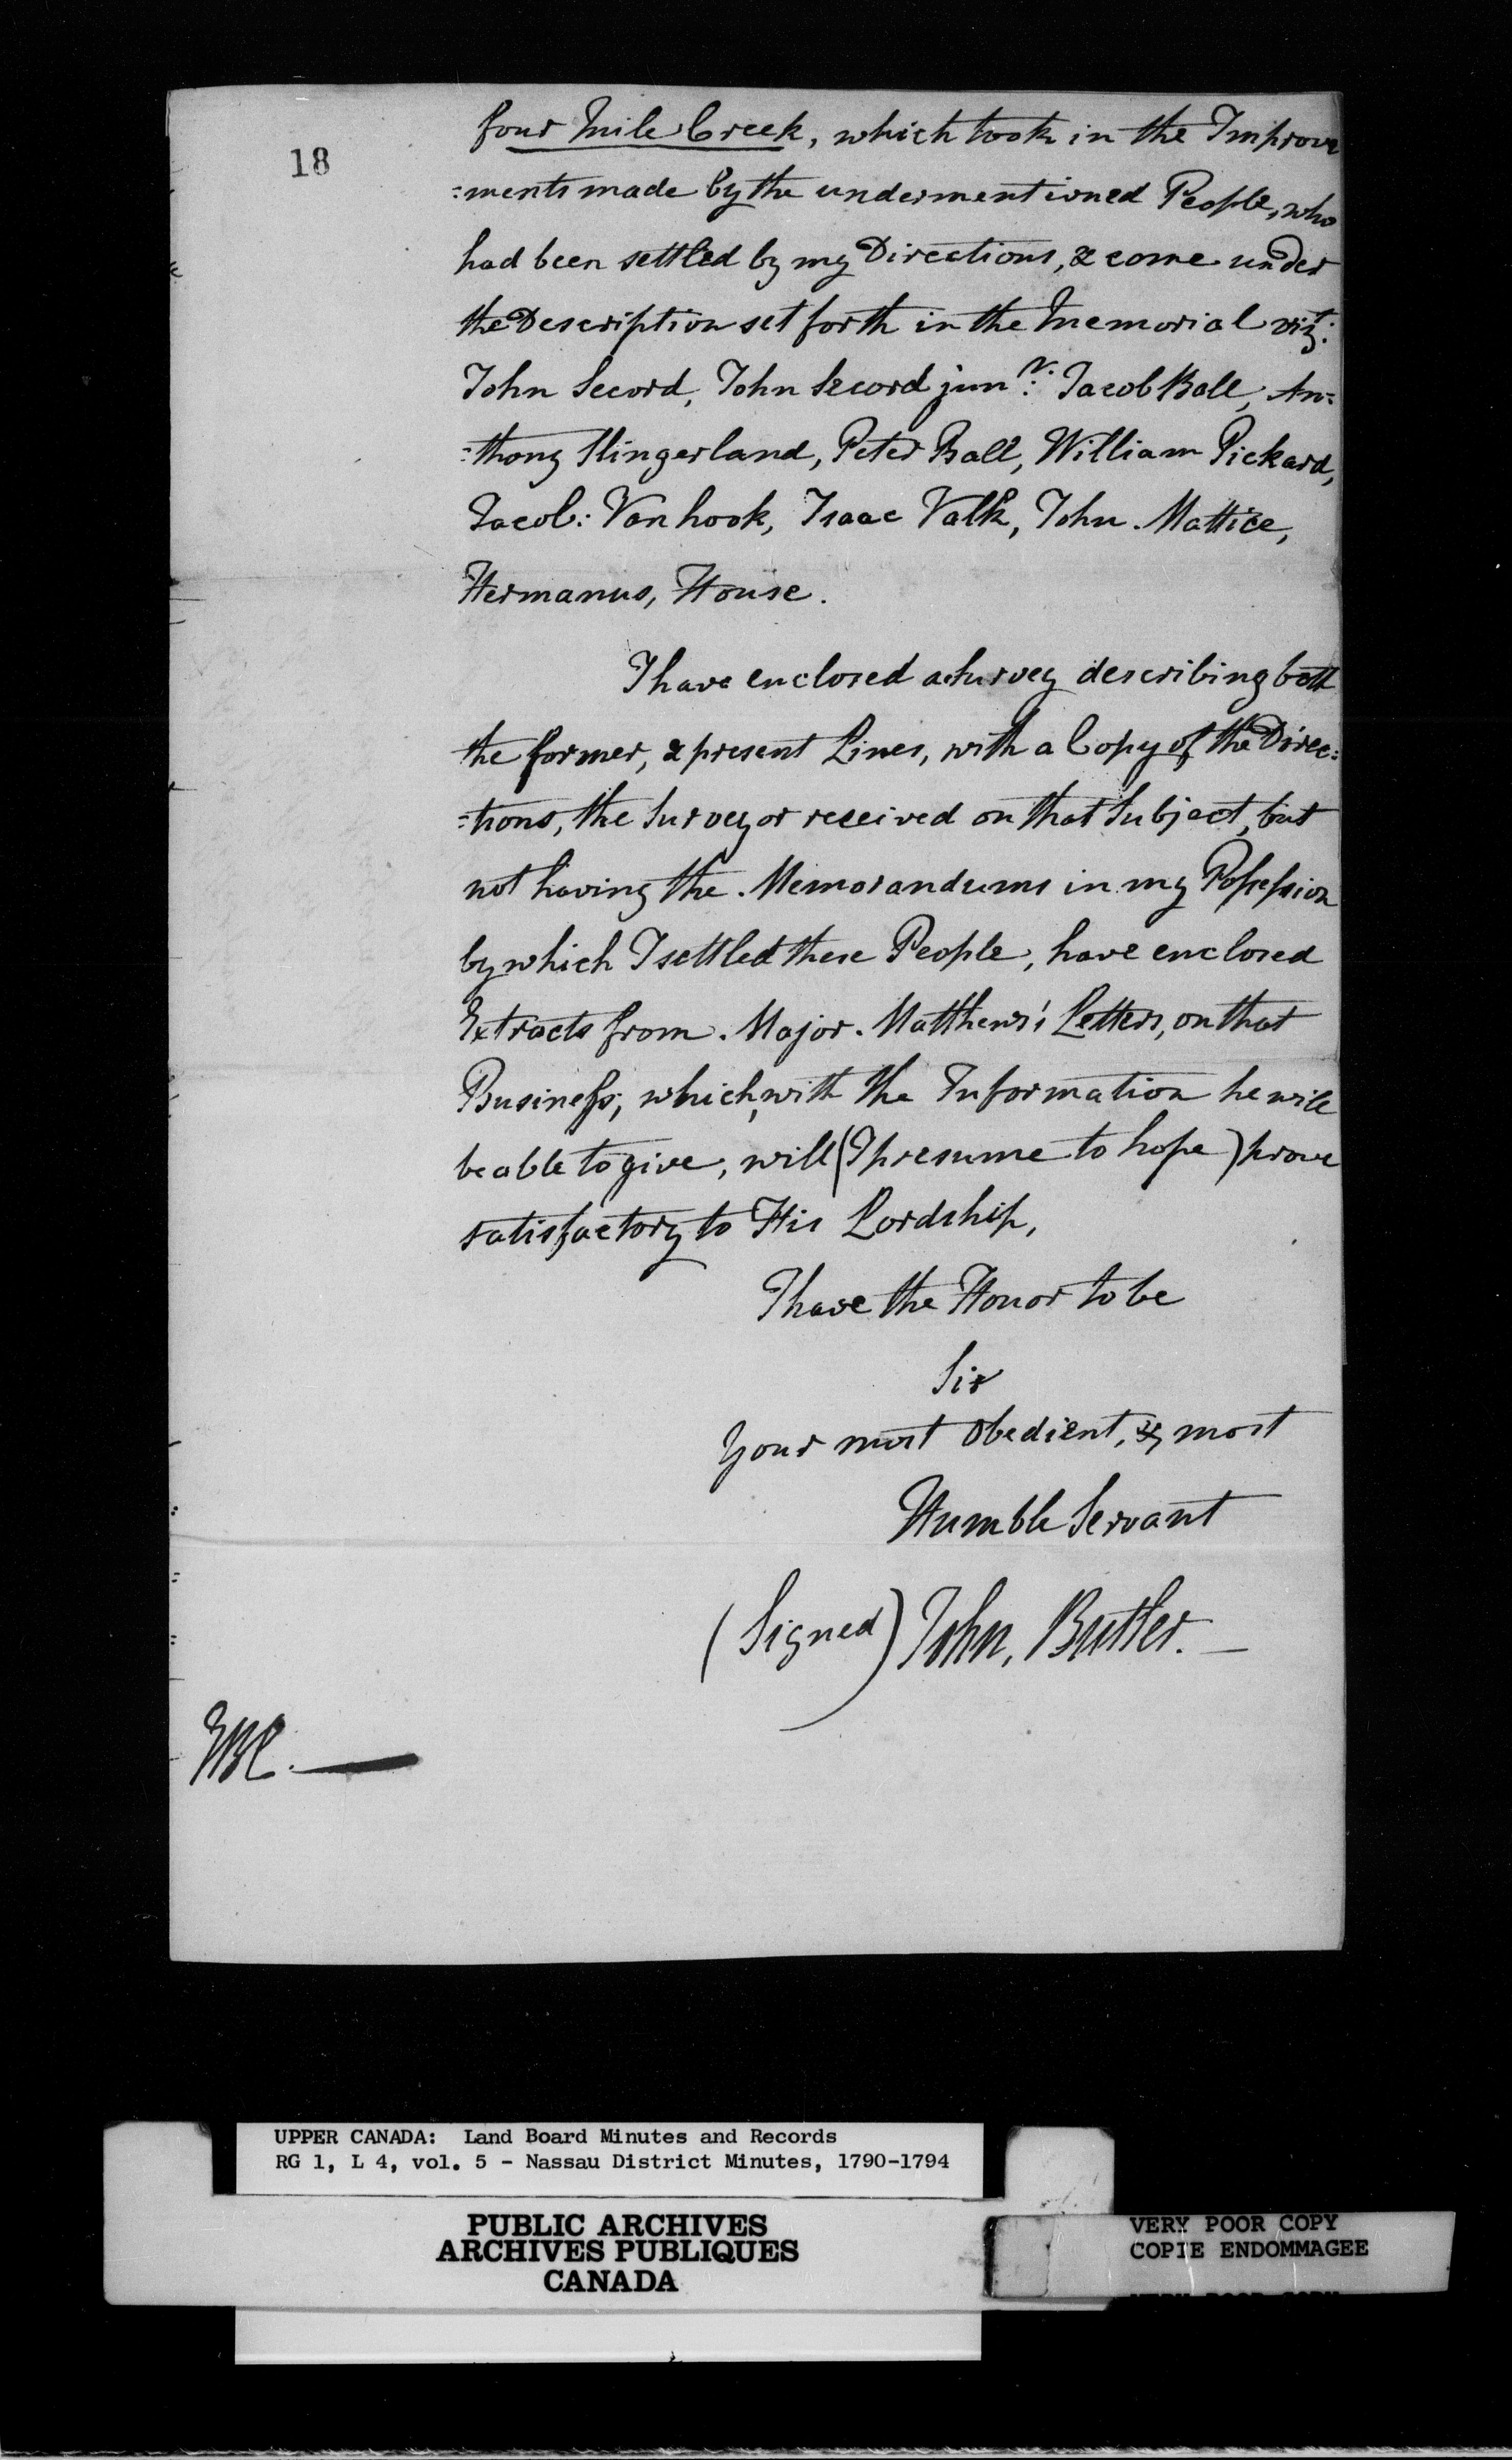 18
four Mile Creek, which took in the Improve
=ments made by the undermentioned People, who
had been settled by my Directions, & come under
the Description set forth in the Memorial vizt:
John Secord, John Secord junr: Jacob Ball, An=
=thony Slingerland, Peter Ball, William Pickard,
Jacob: Vanhook, Isaac Valk, John. Mattice,
Hermanus, House.
I have enclosed a Survey describing both
the former, & present Lines, with a Copy of the Direc=
=tions, the Surveyor received on that Subject, but
not having the Memorandums in my Possession
by which I settled these People, have enclosed
Extracts from Major Matthews's Letters, on that
Business; which, with the Information he will
be able to give, will (I presume to hope) prove
satisfactory to His Lordship,
I have the Honor to be
Sir
Your most Obedient, & most
Humble Servant
(Signed) John, Butler. —
UPPER CANADA: Land Board Minutes and Records
RG 1, L 4, vol. 5 - Nassau District Minutes, 1790-1794
PUBLIC ARCHIVES
ARCHIVES PUBLIQUES
CANADA
VERY POOR COPY
COPIE ENDOMMAGEE
VERY POOR COPY